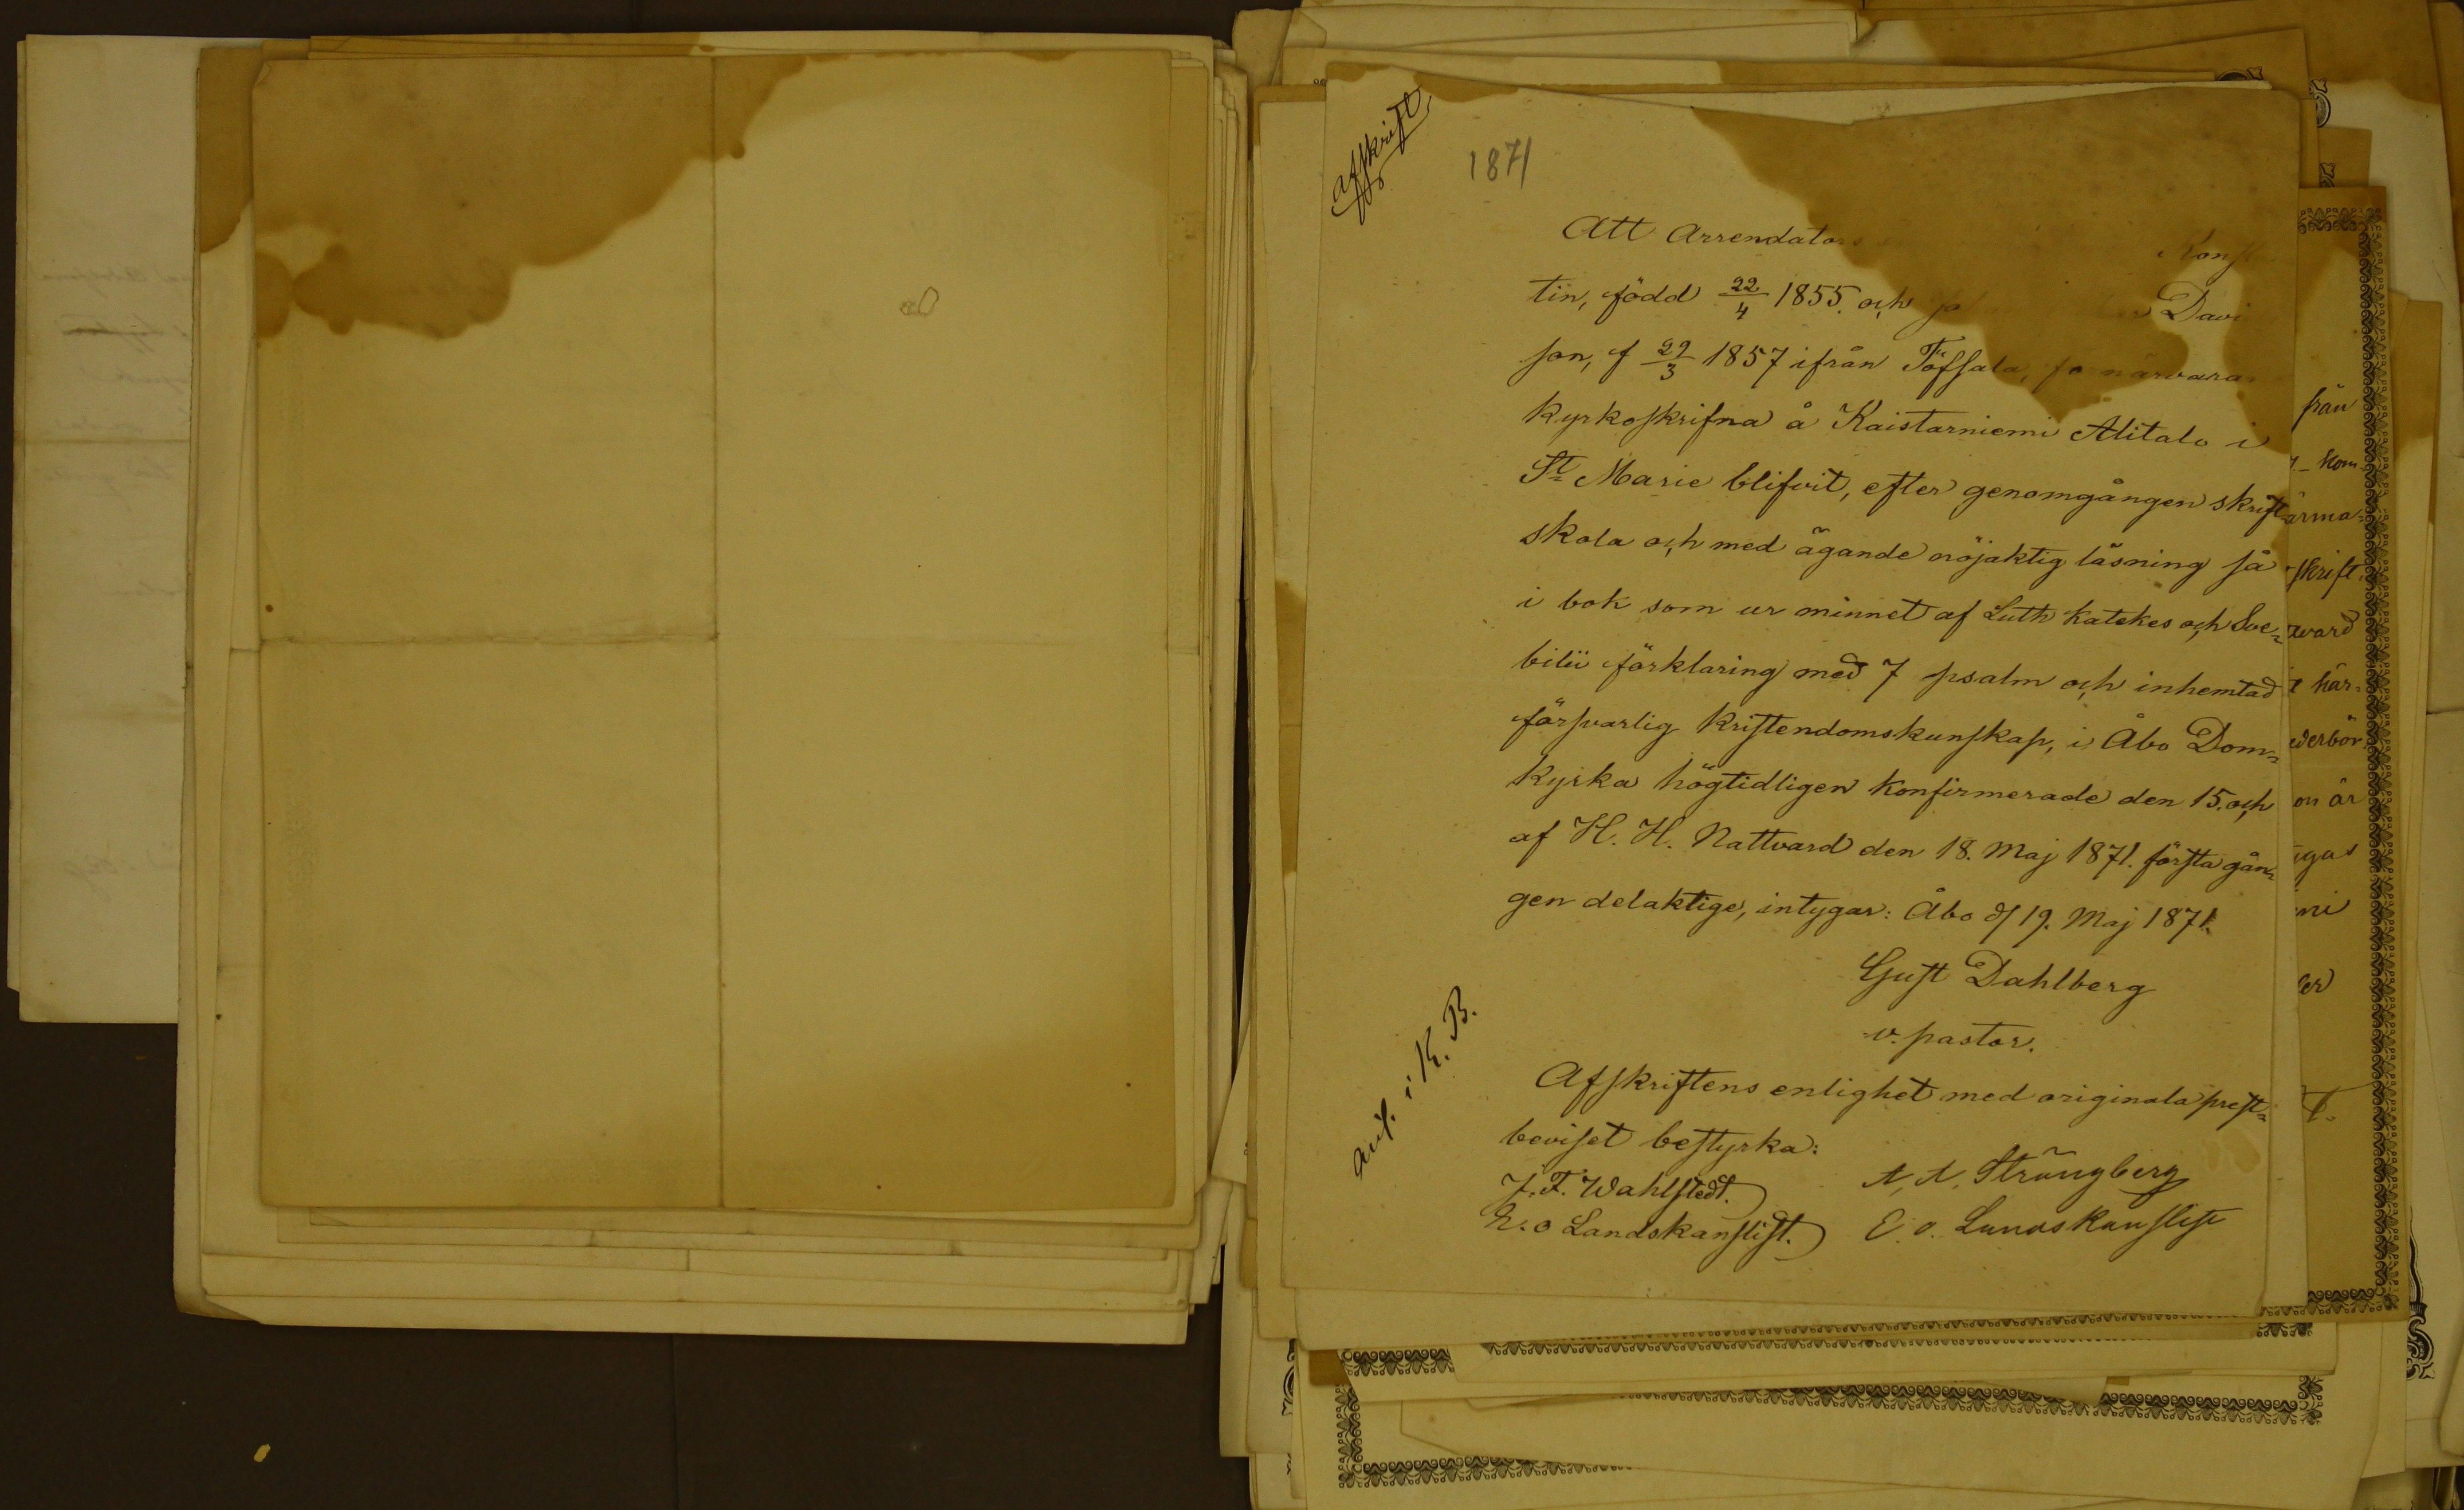 Afskrift,
1871
Att Arrendators Konst
tin, född 22/4 1855. och Davi
son, f 29/3 1857 ifrån Töfsala, närvara
kyrkoskrifna å Kaistarniemi Alitalo i
St Marie blifvit, efter genomgången skrift
skola och med ägande nöjaktig läsning så
i bok som ur minnet af Luth katekes och Sve-
bilii förklaring med 7 psalm och inhemtad
försvarlig kristendomskunskap, i Åbo Dom-
kyrka högtidligen konfirmerade den 15. och
af H. H. Nattvard den 18. Maj 1871. första gån-
gen delaktige, intygar: Åbo d/ 19. Maj 1871.
Gust Dahlberg
v. pastor.
Afskriftens enlighet med originala prest-
beviset bestyrka:
J. F. Wahlstedt.
E. o Landskanslist.
A. A. Strångberg
E. o. Landskanslist
ant. i K. B.
från
kom
ärma-
skrift
tvard
t här-
ederbör
on är
igas
ni
er